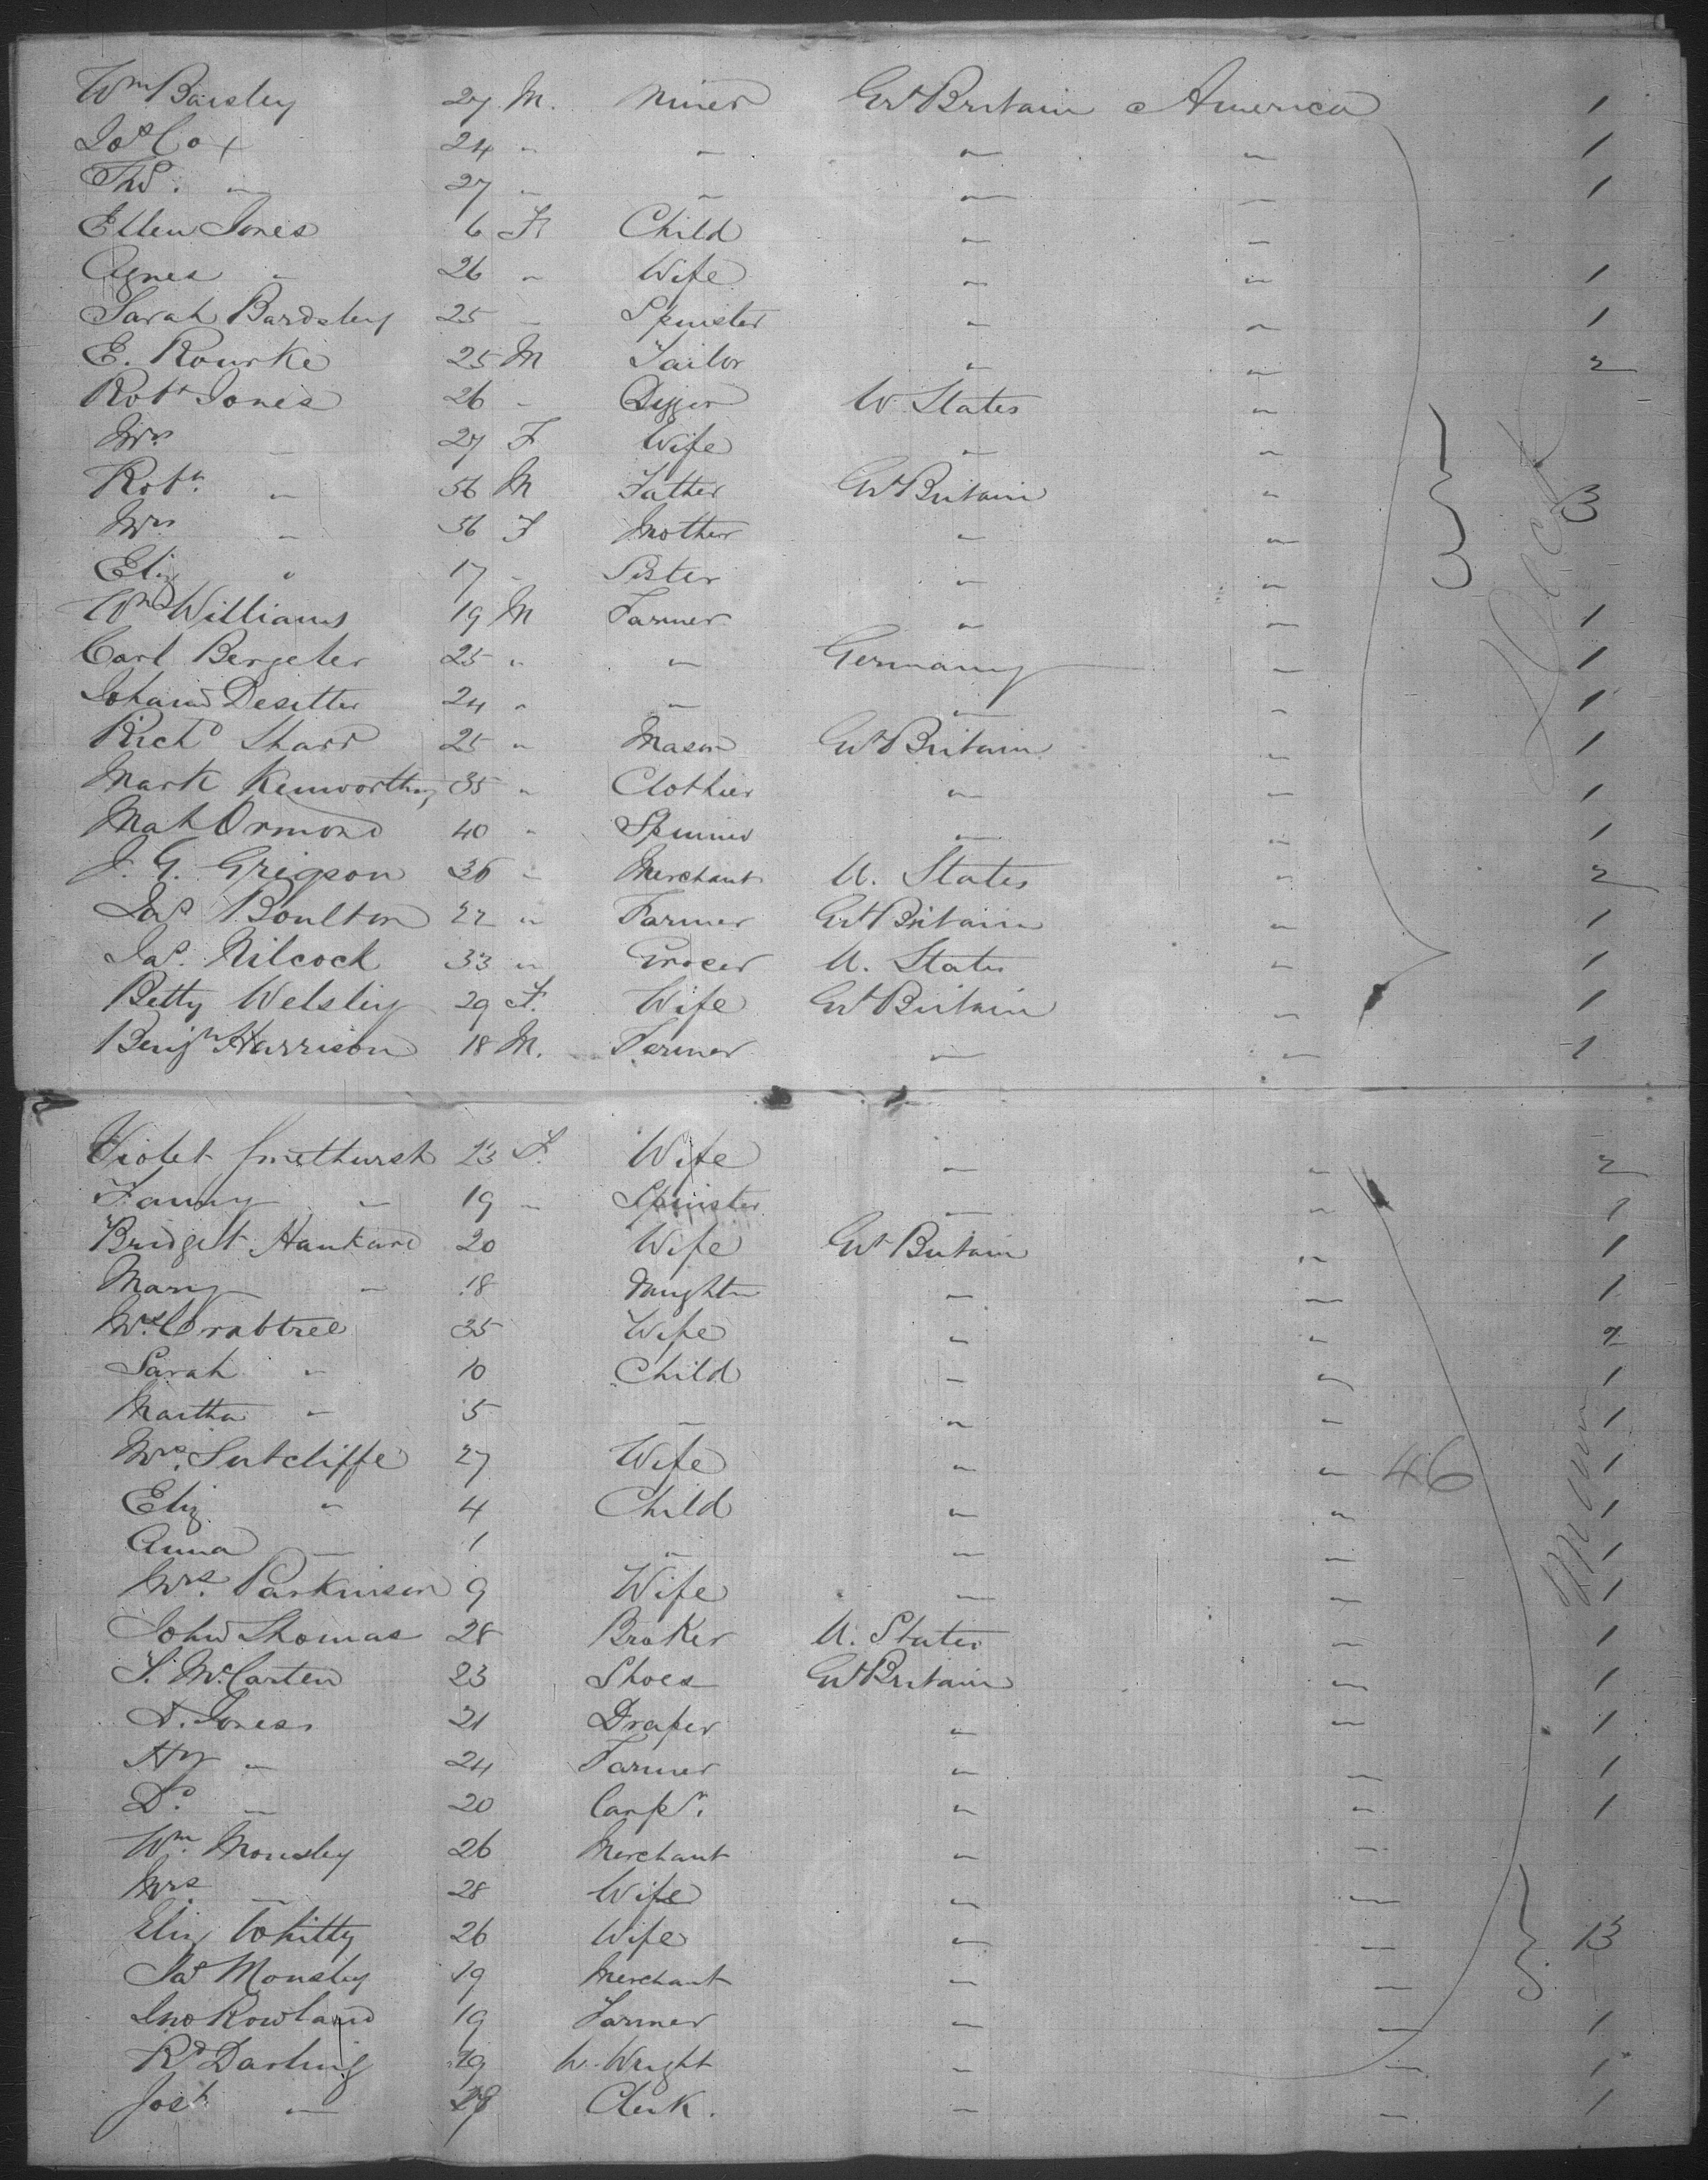 Wm Baisley 27 M. Miner Gt Britain America 1
Jos Cox 24 " " " " 1
Thos. " 27 " " " " 1
Ellen Jones 6 F. Child " "
Agnes " 26 " Wife " " 1
Sarah Bardsley 25 " Spinster " " 1
E. Rourke 25 M Tailor " " 2
Robt Jones 26 " Digger U States "
Mrs " 27 F Wife " "
Robt. " 56 M Father Gt Britain " 3
Mrs " 56 F Mother " "
Eliz " 17 " Sister " "
Wm Williams 19 M Farmer " " 1
Carl Bergeter 25 " " Germany " 1
Johann Desitter 24 " " " " 1
Richd Sharr 25 " Mason Gt Britain " 1
Mark Kenworthy 35 " Clothier " " 1
Mat Ormond 40 " Spinner " " 1
J. G. Grigson 36 " Merchant U. States " 2
Jas Boulton 22 " Farmer Gt Britain " 1
Jas. Nilcock 33 " Grocer U. States " 1
Betty Welsley 29 F. Wife Gt Britain " 1
Benjn Harrison 18 M. Farmer " " 1
Violet Smethurst 23 F. Wife " " 2
Fanny " 19 " Spinster " " 1
Bridget Hankard 20 Wife Gt Britain " 1
Mary " 18 Daughter " " 1
Mrs Crabtree 35 Wife " " 2
Sarah " 10 Child " " 1
Martha " 5 " " " 1
Mrs. Sutcliffe 27 Wife " " 46 1
Eliz " 4 Child " " 1
Anna " 1 " " " 1
Mrs. Parkinson 9 Wife " " 1
John Thomas 28 Broker U. States " 1
S. McCarten 23 Shoes Gt Britain " 1
D. Jones 21 Draper " " 1
Hy " 24 Farmer " " 1
Do. " 20 Carpr. " " 1
Wm. Mousley 26 Merchant " "
Mrs " 28 Wife " "
Eliz Whitty 26 Wife " " 13
Jas Mousley 19 Merchant " "
Jno Rowland 19 Farmer " " 1
Rd Darling 19 W. Wright " " 1
Josh " 29 Clerk. " " 1